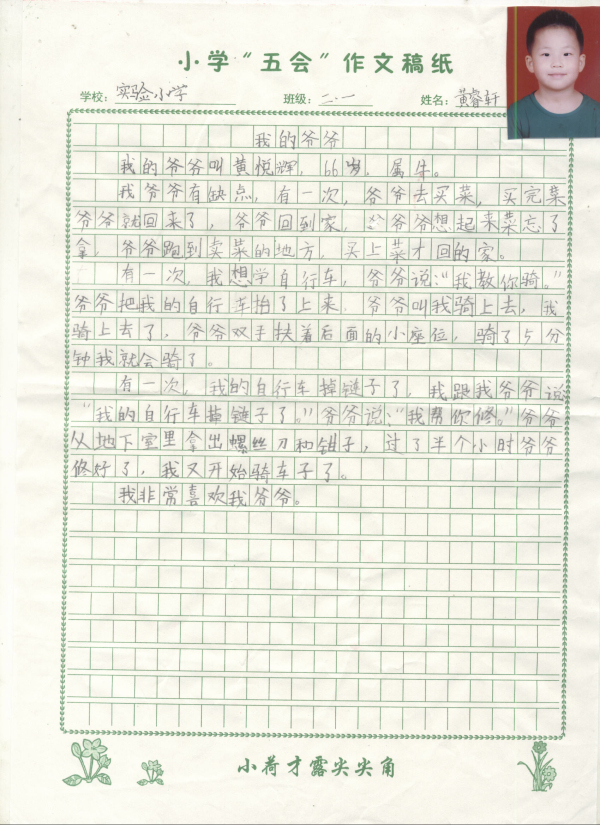 小学“五会”作文稿纸
学校：实验小学 班级：二.一 姓名：黄睿轩
我的爷爷
我的爷爷叫黄悦辉，66岁，属牛。
我爷爷有缺点，有一次，爷爷去买菜，买完菜
爷爷就回来了，爷爷回到家，爷爷想起来菜忘了
拿，爷爷跑到卖菜的地方，买上菜才回的家。
有一次，我想学自行车，爷爷说：“我教你骑。”
爷爷把我的自行车抬了上来，爷爷叫我骑上去，我
骑上去了，爷爷双手扶着后面的小座位，骑了5分
钟我就会骑了。
有一次，我的自行车掉链子了，我跟我爷爷说
“我的自行车掉链子了。”爷爷说：“我帮你修。”爷爷
从地下室里拿出螺丝刀和钳子，过了半个小时爷爷
修好了，我又开始骑车子了。
我非常喜欢我爷爷。
小荷才露尖尖角